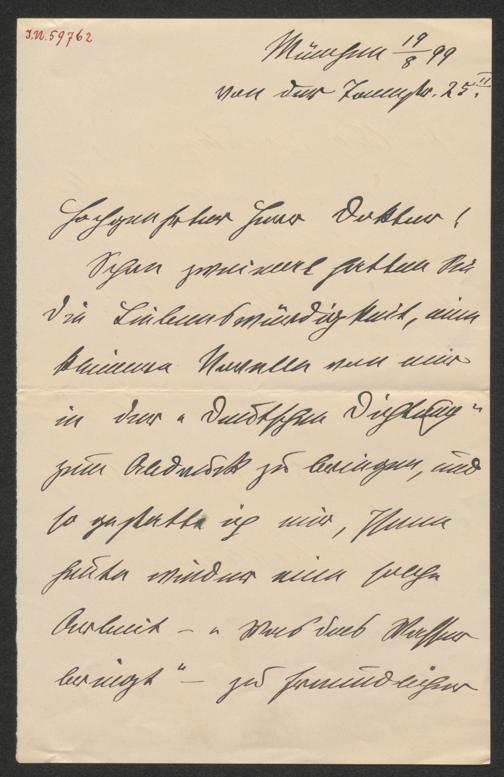 I.N. 59762
München 19/8 99
von der Tannstr. 25.II
Hochgeehrter Herr Doktor!
Schon zweimal hatten Sie
die Liebenswürdigkeit, eine
kleinere Novelle von mir
in der „Deutschen Dichtung"
zum Abdruck zu bringen, und
so gestatte ich mir, Ihnen
heute wieder eine solche
Arbeit – „Was das Wasser
bringt" – zu freundlicher